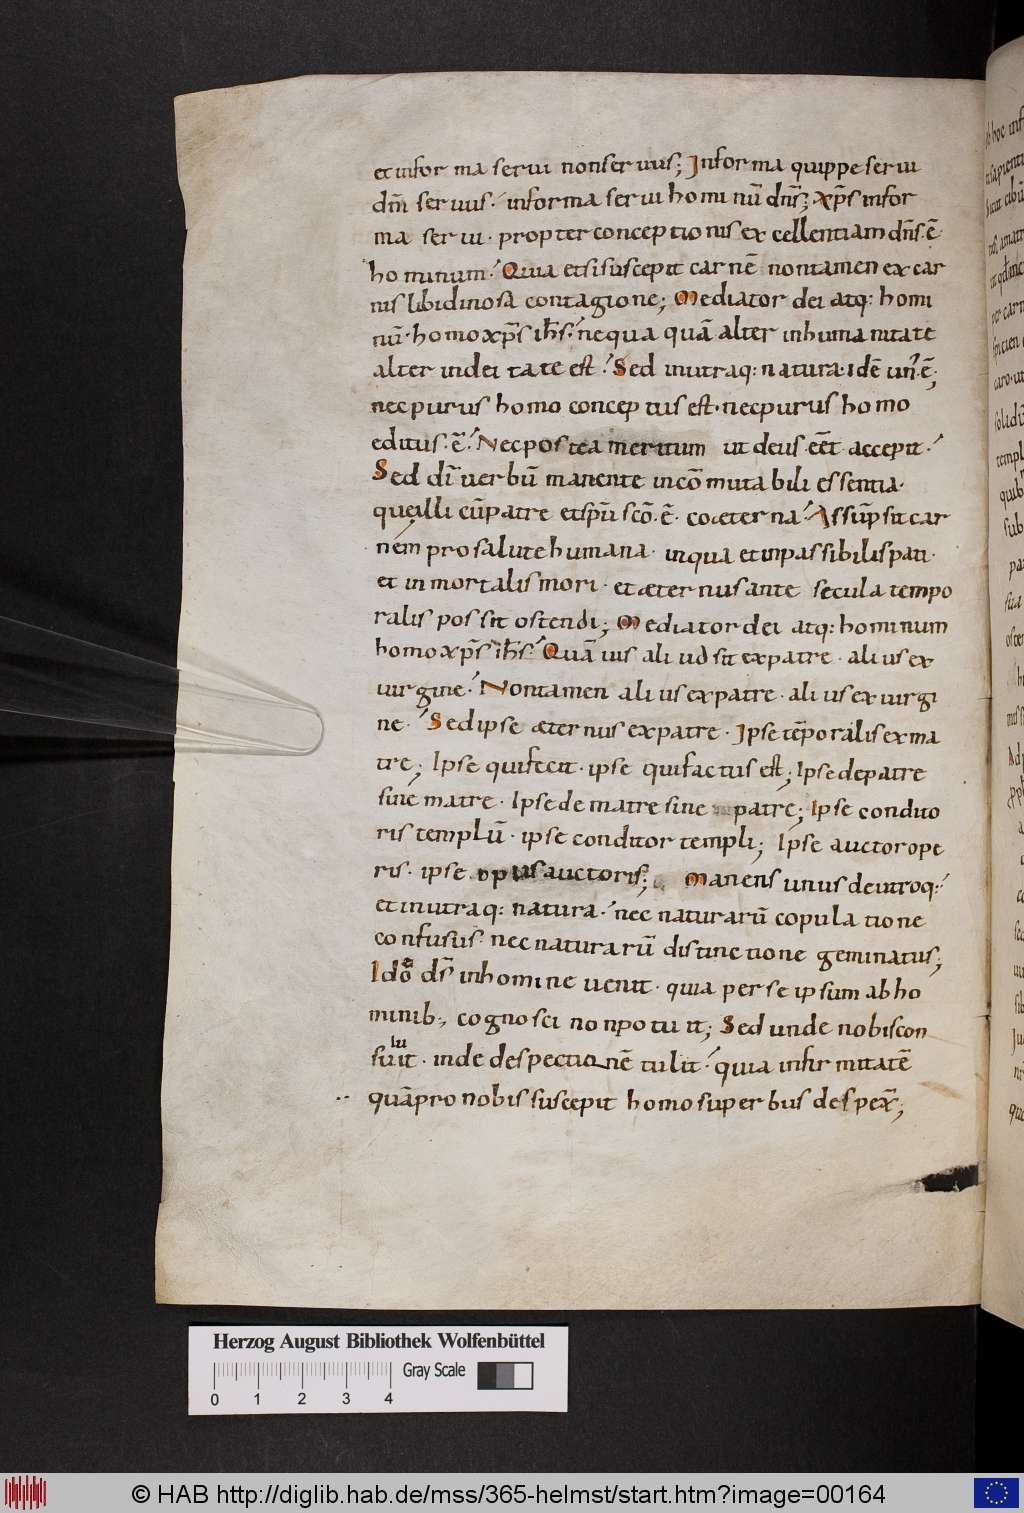 et infor ma serui non ser uus; In for ma quippe ser ui
dñi ser uus· in for ma ser ui homi nũ dñs; xp̃s in for
ma ser ui· prop ter concep tio nis ex cellentiam dñs ẽ
ho minum· Quia etsi suscepit carnẽ non tamen ex car
nis libidinosa contagione; Mediator dei atq: homi
nũ· homo xp̃s ih̃s· ne qua quã alter in huma nitate
alter in dei tate est· Sed in utraq: natura· idẽ un' ẽ;
nec purus homo concep tus est· nec purus homo
editus· ẽ· Nec postea meritum ut deus eẽt accepit·
Sed dĩ uerbũ manente in cõ muta bili essentia·
quę illi cũ patre et sp̃u scõ· ẽ· co æter na· Assũpsit car
nem pro salute humana· in qua et inpassibilis pati·
et in mortalis mori· et æter nus ante secula tempo
ralis pos sit ostendi; Mediator dei atq: hominum
homo xp̃s ih̃s· Quã uis ali ud sit ex patre· ali us ex
uirgine· Non tamen ali us ex patre· ali us ex uirgi
ne· Sed ipse æter nus ex patre· Ipse tẽporalis ex ma
tre; Ipse qui fecit· ipse qui factus est; Ipse de patre
sine matre· Ipse de matre sine patre; Ipse condito
ris templũ· ipse conditor templi; Ipse auctor ope
ris· ipse opus auctoris; Manens unus de utroq:
et in utraq: natura· nec naturarũ copula tione
confusus· nec naturarũ distinc tione geminatus;
Idõ ds̃ in homine uenit· quia per se ipsum ab ho
minib; cognosci non potu it; Sed unde nobis con
lu
suit· inde despectio nẽ tulit· quia infir mitatẽ
quã pro nobis suscepit homo super bus despex̃;
Herzog August Bibliothek Wolfenbüttel
Gray Scale
0 1 2 3 4
© HAB http://diglib.hab.de/mss/365-helmst/start.htm?image=00164